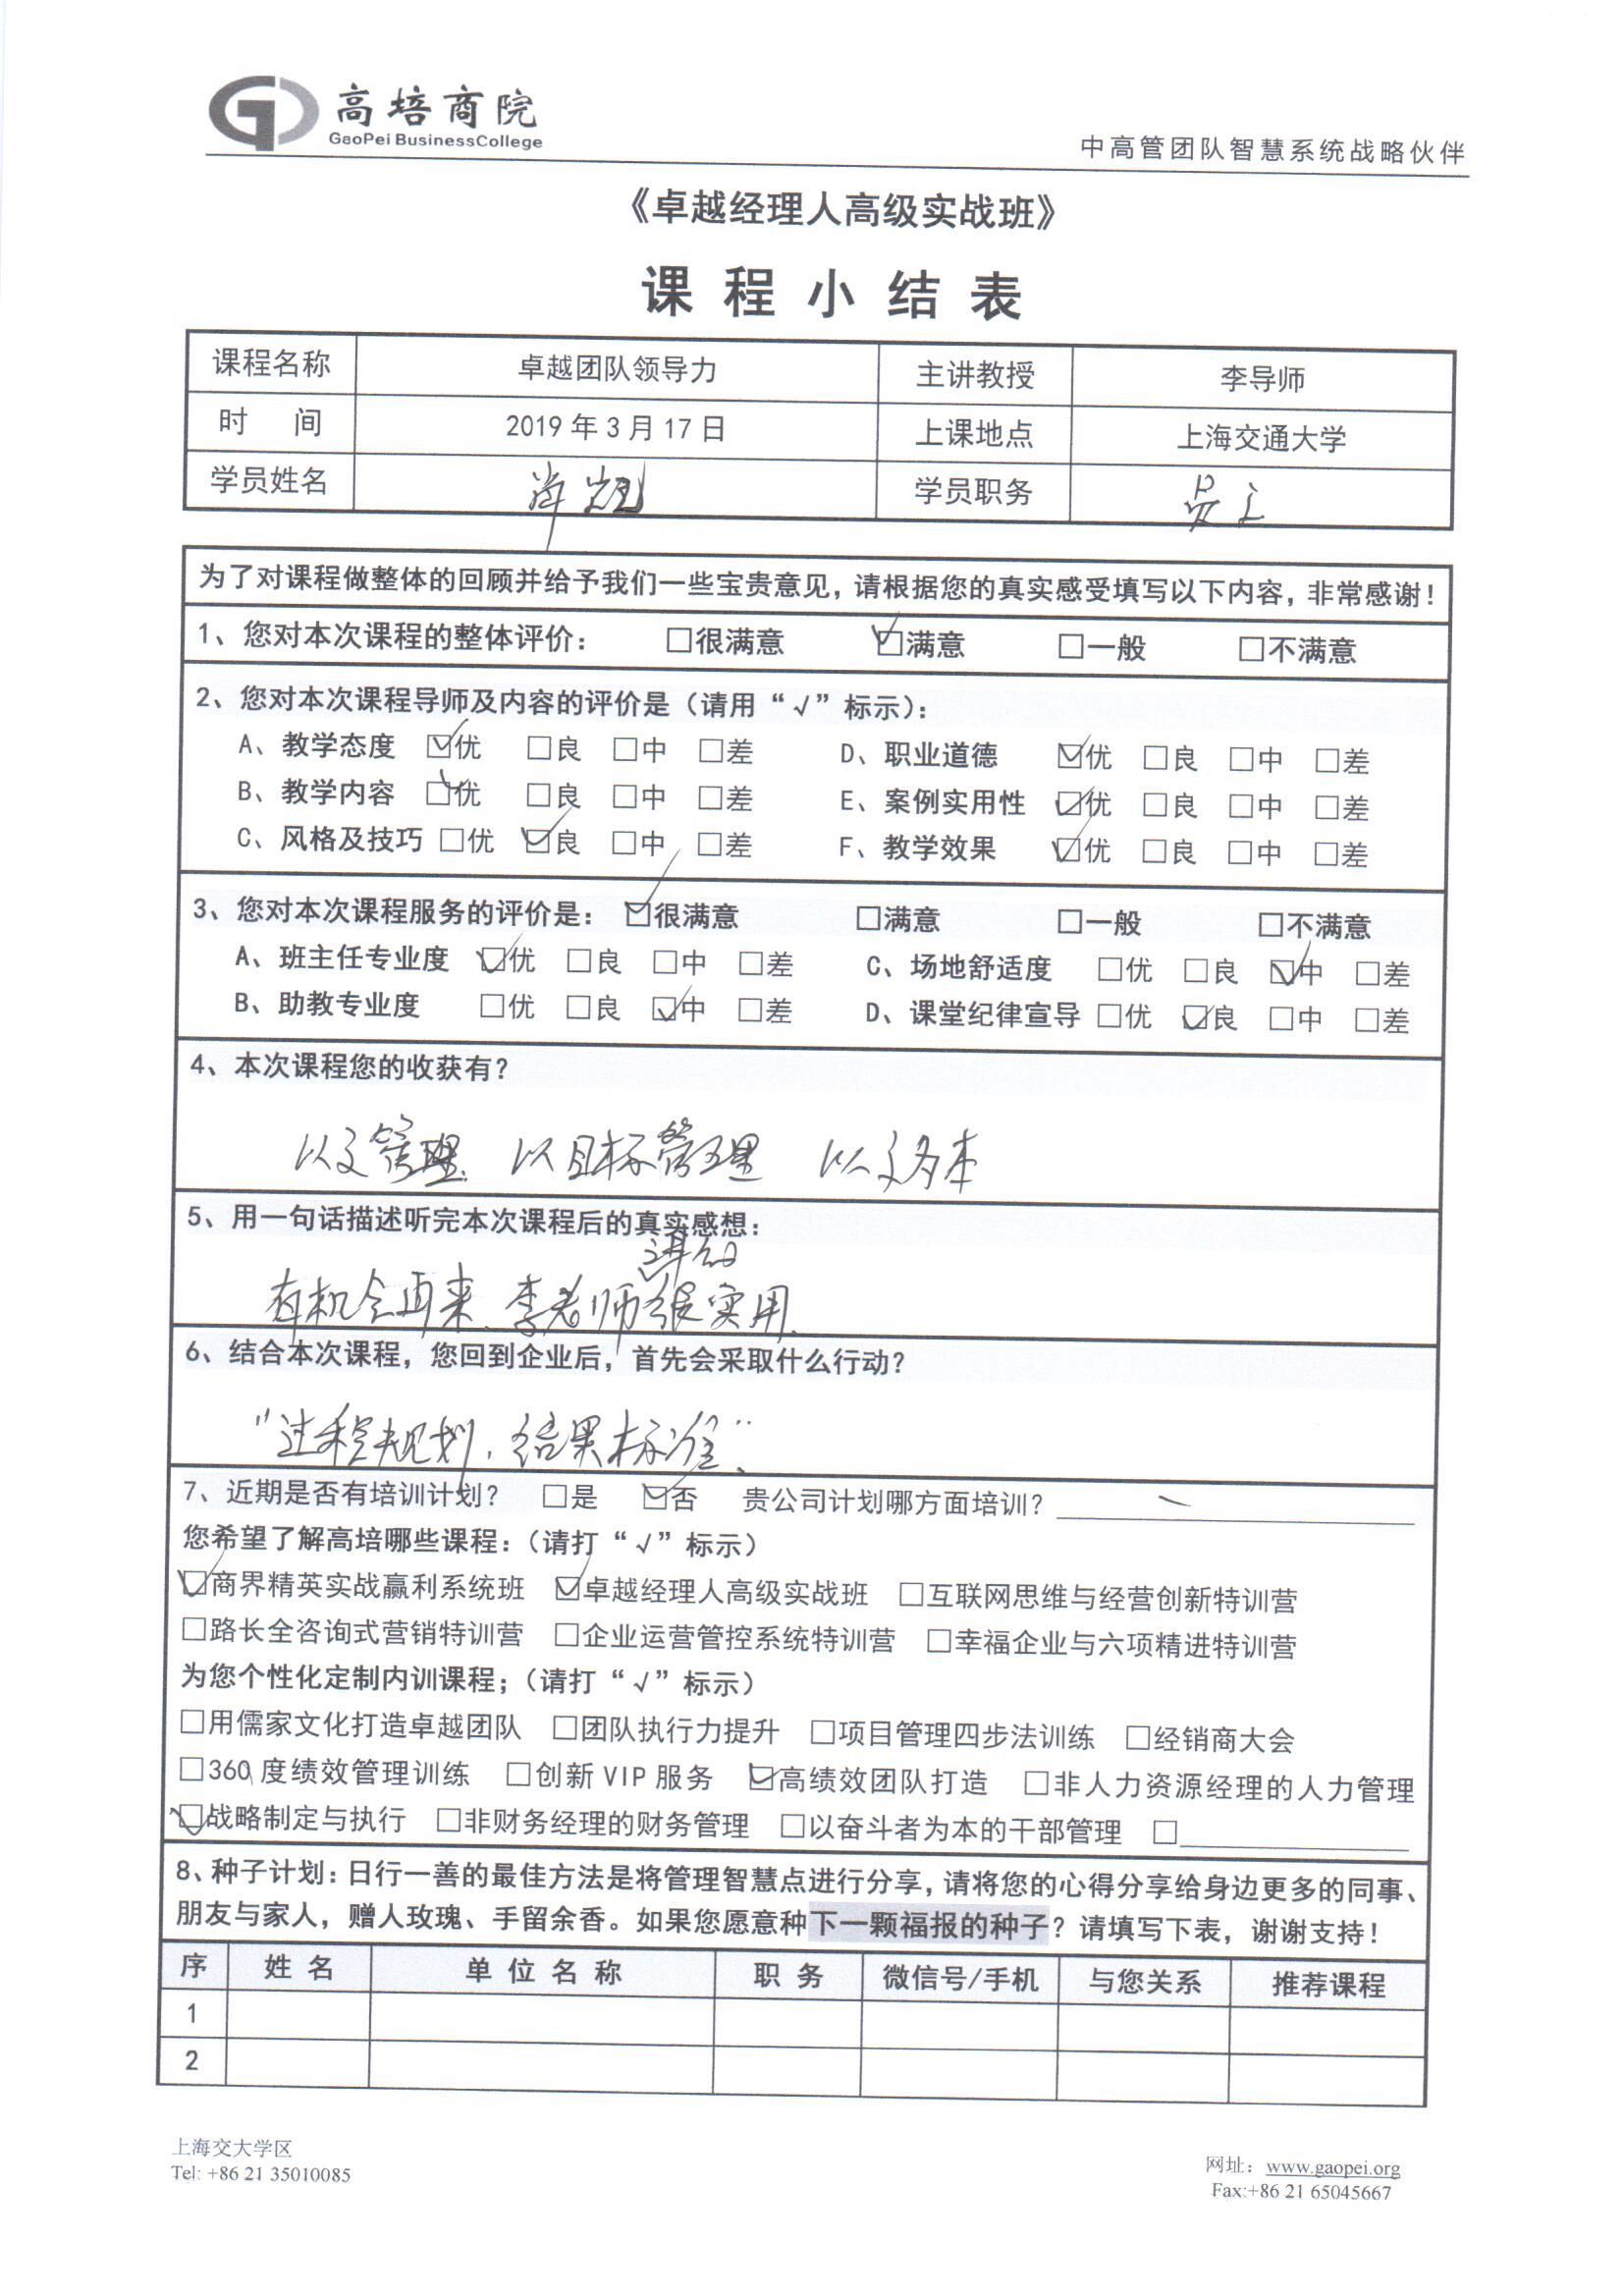 高培商院
GaoPei BusinessCollege
中高管团队智慧系统战略伙伴
《卓越经理人高级实战班》
课程小结表
课程名称 卓越团队领导力 主讲教授 李导师
时 间 2019年3月17日 上课地点 上海交通大学
学员姓名 学员职务
为了对课程做整体的回顾并给予我们一些宝贵意见，请根据您的真实感受填写以下内容，非常感谢！
1、您对本次课程的整体评价： □很满意 ☑满意 □一般 □不满意
2、您对本次课程导师及内容的评价是（请用“√”标示）：
A、教学态度 ☑优 □良 □中 □差 D、职业道德 ☑优 □良 □中 □差
B、教学内容 ☑优 □良 □中 □差 E、案例实用性 ☑优 □良 □中 □差
C、风格及技巧 □优 ☑良 □中 □差 F、教学效果 ☑优 □良 □中 □差
3、您对本次课程服务的评价是： ☑很满意 □满意 □一般 □不满意
A、班主任专业度 ☑优 □良 □中 □差 C、场地舒适度 □优 □良 ☑中 □差
B、助教专业度 □优 □良 ☑中 □差 D、课堂纪律宣导 □优 ☑良 □中 □差
4、本次课程您的收获有？
管理 以目标管理 本
5、用一句话描述听完本次课程后的真实感想：
讲的
有机会再来、李老师很实用、
6、结合本次课程，您回到企业后，首先会采取什么行动？
“过程规划，结果标准”、
7、近期是否有培训计划？ □是 ☑否 贵公司计划哪方面培训？
您希望了解高培哪些课程：（请打“√”标示）
☑商界精英实战赢利系统班 ☑卓越经理人高级实战班 □互联网思维与经营创新特训营
□路长全咨询式营销特训营 □企业运营管控系统特训营 □幸福企业与六项精进特训营
为您个性化定制内训课程；（请打“√”标示）
□用儒家文化打造卓越团队 □团队执行力提升 □项目管理四步法训练 □经销商大会
□360度绩效管理训练 □创新VIP服务 ☑高绩效团队打造 □非人力资源经理的人力管理
☑战略制定与执行 □非财务经理的财务管理 □以奋斗者为本的干部管理 □
8、种子计划：日行一善的最佳方法是将管理智慧点进行分享，请将您的心得分享给身边更多的同事、
朋友与家人，赠人玫瑰、手留余香。如果您愿意种下一颗福报的种子？请填写下表，谢谢支持！
序 姓名 单位名称 职务 微信号/手机 与您关系 推荐课程
1
2
上海交大学区
Tel: +86 21 35010085
网址：www.gaopei.org
Fax:+86 21 65045667